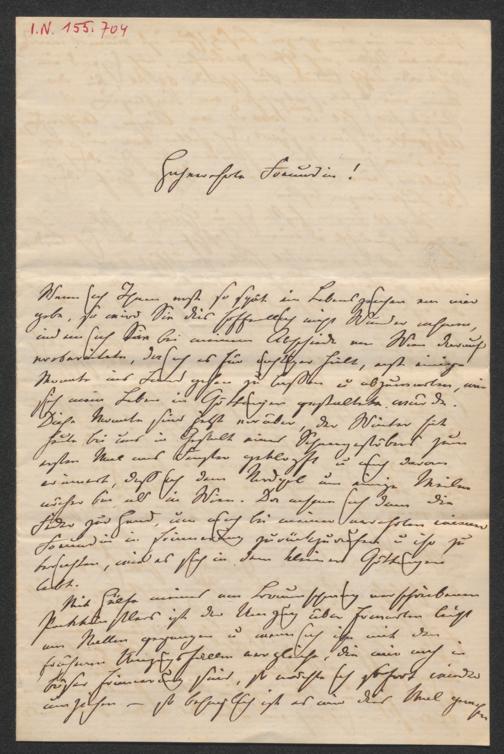 I.N. 155.704
Hochverehrte Freundin!
Wenn ich Ihnen erst so spät ein Lebenszeichen von mir
gebe, so wird Sie dies hoffentlich nicht Wunder nehmen,
indem ich Sie bei meinem Abschiede von Wien darauf
vorbereitete, daß ich es für richtiger hielt, erst einige
Monate ins Land gehen zu lassen u abzuwarten, wie
sich mein Leben in Göttingen gestalten würde.
Diese Monate sind jetzt vorüber, der Winter hat
heute bei uns in Gestalt eines Schneegestöbers zum
ersten Mal ans Fenster geklopft u mich daran
erinnert, daß ich dem Nordpol um einige Meilen
näher bin als in Wien. Da nehme ich denn die
Feder zur Hand, um mich bei meiner verehrten Wiener
Freundin in Erinnerung zurückzurufen u ihr zu
berichten, wie es sich in dem kleinen Göttingen
lebt.
Mit Hülfe eines aus Braunschweig verschriebenen
ist der Umzug über Erwarten leicht
von Statten gegangen u wenn ich ihn mit den
früheren vergleiche, die mir noch in
böser Erinnerung sind, so möchte ich sofort wieder
umziehen — so behaglich ist es mir dies Mal